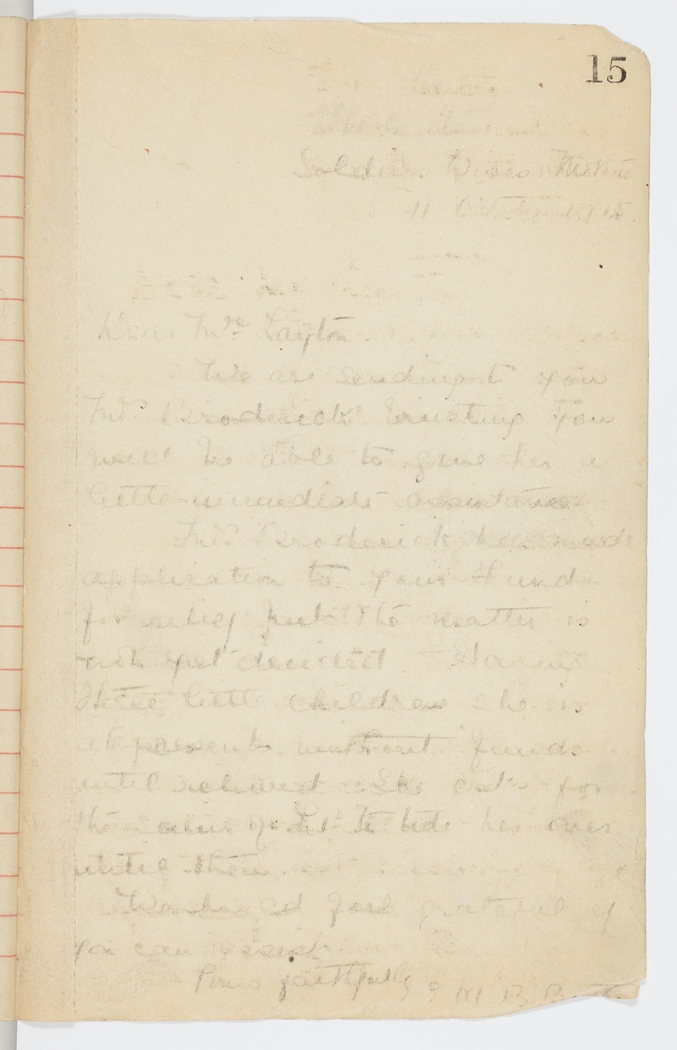 15
Soldiers Wives
11 October 1915
Dear Mrs Layton.
We are sending to you
Mrs Broderick trusting you
will be able to give her a
little immediate assistance
Mrs Broderick has made
application to your Fund
for relief but the matter is
not yet decided. Having
three little children she is
at present without funds
until relieved. She asks for
the value of £1 to tide her over
until then.
We should feel grateful if
you can assist.
Yours faithfully